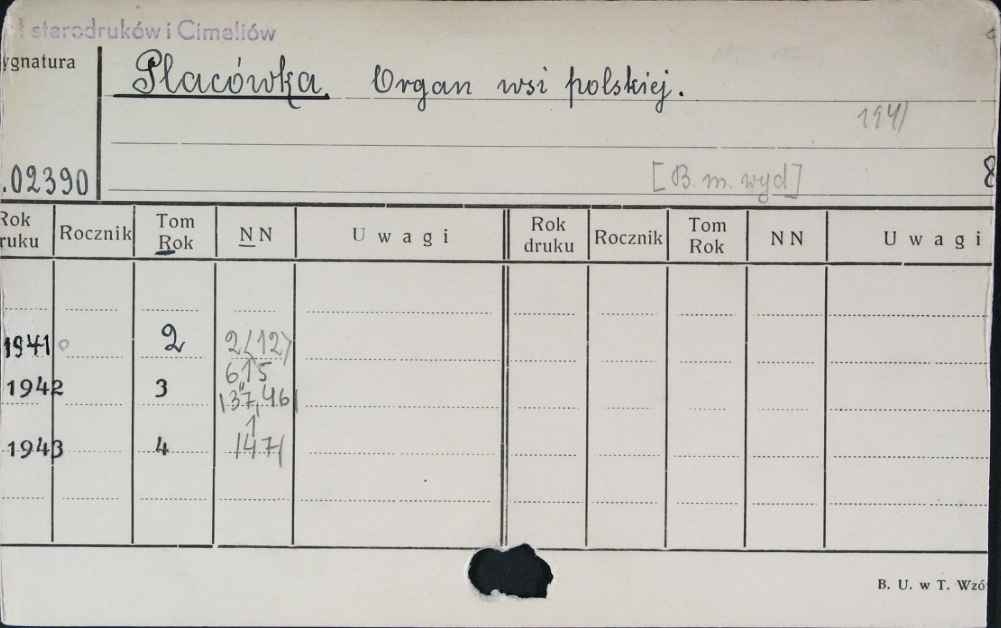 starodruków i Cimeliów
ygnatura
Placówka. Organ wsi polskiej.
1941
.02390
[B. m. wyd]
8
Rok druku Rocznik Tom Rok NN Uwagi Rok druku Rocznik Tom Rok NN Uwagi
1941 2 2(12)
6 15
1942 3 /37,46/
1
1943 4 /47/
B. U. w T. Wzó